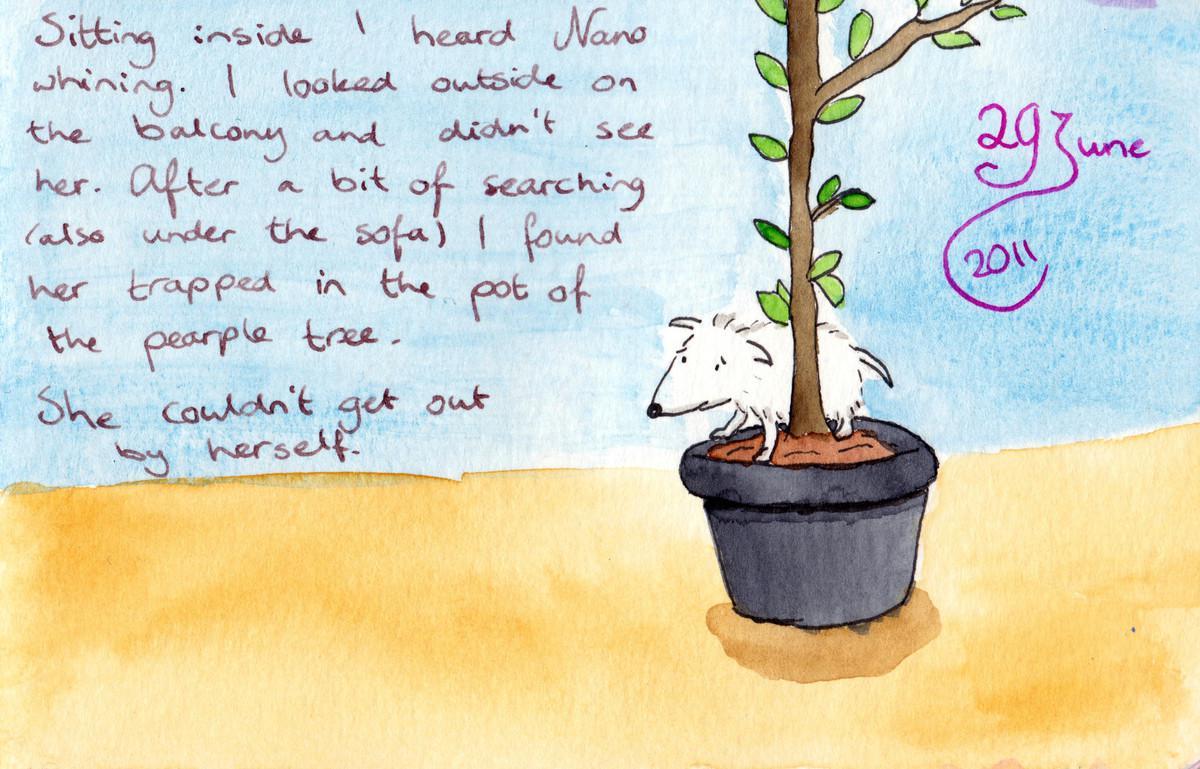 Sitting inside I heard Nano
whining. I looked outside on
the balcony and didn't see
her. After a bit of searching
(also under the sofa) I found
her trapped in the pot of
the pearple tree.
She couldn't get out
by herself.
29 June
2011